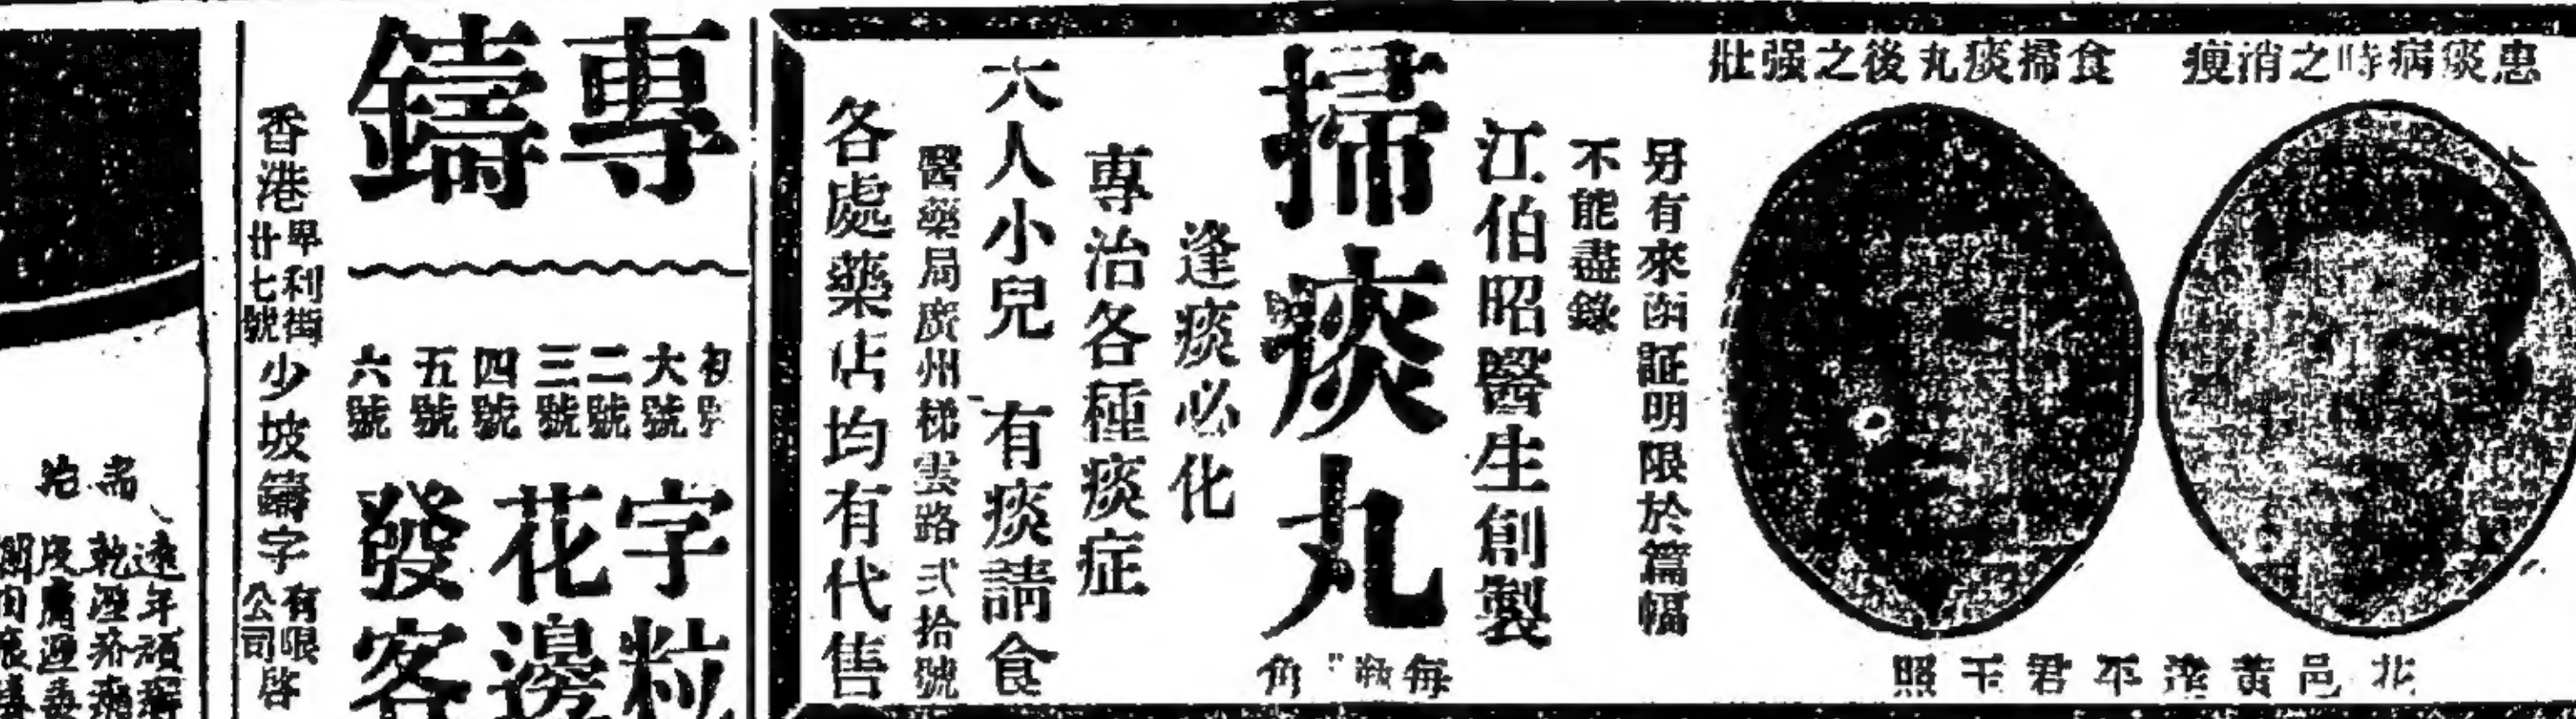 患痰病時之消瘦
食掃痰丸後之强壯
另有來函証明限於篇幅
不能盡錄
江伯昭醫生創製
掃痰丸
每瓶 角
逢痰必化
專治各種痰症
大人小兒 有痰請食
醫藥局廣州梯雲路弍拾號
各處藥店均有代售
專鑄
初號
大號
二號
三號
四號
五號
六號
字粒
花邊
發客
香港畢利街廿七號少坡鑄字有限公司啓